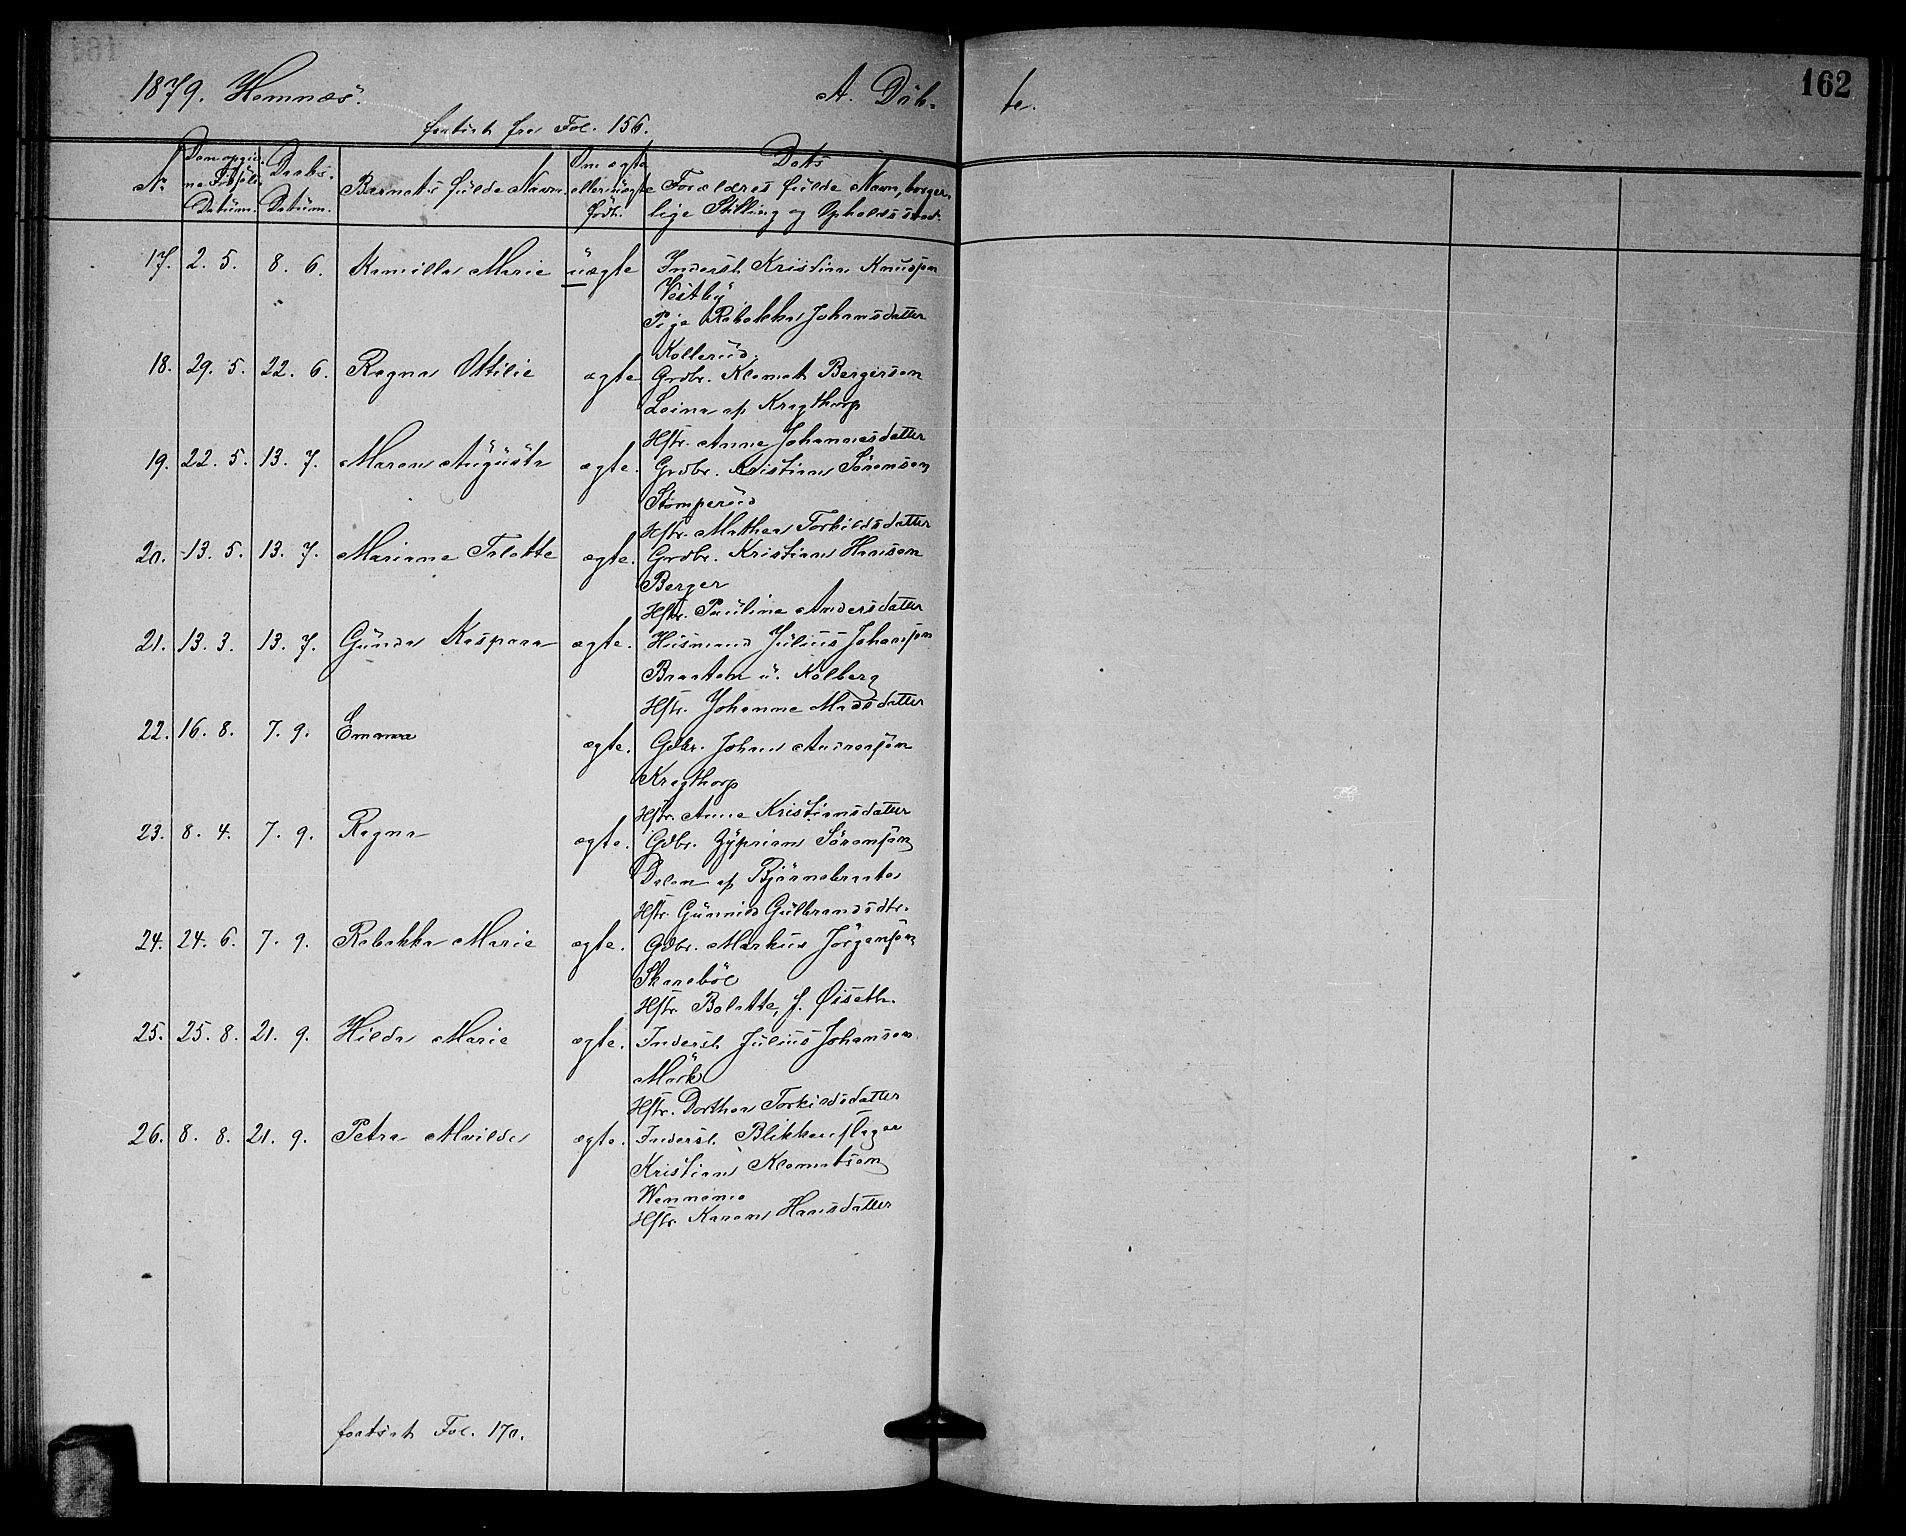 162
1879. Hemnæs.
A. Döb-
te.
fortsat fra Fol. 156.
Nr. Den opgivne Fødsels Datum. Daabs-Datum. Barnets fulde Navn. Om ægte eller uægte født. Dets Forældres fulde Navn, borgerlige Stilling og Opholdssted.
17. 2. 5. 8. 6. Kamilla Marie uægte Inderst Kristian Knusson
Vestby
Pige Rebekka Johansdatter
Kollerud.
18. 29. 5. 22. 6. Ragna Ottilie ægte Grdbr. Klemet Bergersen
Leina af Kragthorp
Hstr. Anne Johannesdatter
19. 22. 5. 13. 7. Maren Augusta ægte. Grdbr. Kristian Sörensen
Stomperud
Hstr. Mathea Torkildsdatter
20. 13. 5. 13. 7. Mariane Talette ægte. Grdbr. Kristian Hansen
Berger
Hstr. Pauline Andersdatter
21. 13. 3. 13. 7. Gunda Kaspara ægte. Husmand Julius Johanson
Braaten u. Kolberg
Hstr. Johanne Madsdatter
22. 16. 8. 7. 9. Emma ægte. Gdbr. Johan Andersson
Kragthorp
Hstr. Anne Kristiansdatter
23. 8. 4. 7. 9. Ragna ægte. Gdbr. Zyprian Sörenson
Dalen af Bjørnebraate
Hstr. Gunnild Gulbrandsdtr.
24. 24. 6. 7. 9. Rebekka Marie ægte. Gdbr. Markus Jörgenson
Skaneböl
Hstr. Bolette, J. Øiseth.
25. 25. 8. 21. 9. Hilda Marie ægte. Inderst Julius Johansen
Mörk
Hstr. Dorthea Torkildsdatter
26. 8. 8. 21. 9. Petra Mathilde ægte. Inderst Blikkenslager
Kristian Klemetsen
Hstr. Karen Hansdatter
fortsat Fol. 170.